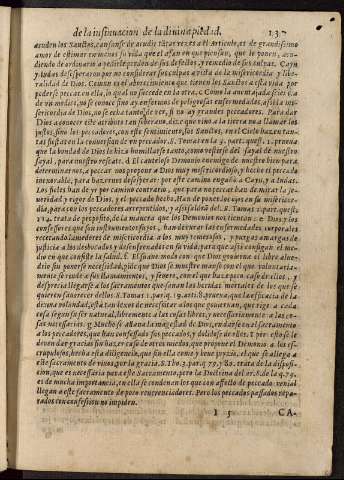 de la insinuacion de la divina piedad. 137
acuden los Sanctos, cansanse de acudir tãtas vezes a el Avriente, es de grandissimo
amor de estimar en mucho su villa que el afan en que piensan, que le ponen, acu-
diendo de ordinario a pedirle perdon de sus defectos, y remedio de sus culpas. Cayn
y Iudas desesperaron por no considerar sus culpas a vista de la misericordia y libe-
ralidad de Dios. Causa es el aborrecimiento que tienen los Sanctos a esta vida por
perderse peccar en ella, lo qual no succede en la otra. c Como la ventajada sciencia
de un medico, no se conoce sino ay enfermos de peligrosas enfermedades, assi la mi-
sericordia de Dios, no se echa tanto de ver, si no ay grandes peccadores. Para dar
Dios a conocer este atributo tan soberano, dize que vino a la tierra no a llamar los
justos, sino los peccadores, con este sentimiento, los Sanctos, en el Cielo hazen tan-
tas fiestas en la conversion de un peccador. S. Tomas en la 3. part. quæst. 1. prueva
que la bondad de Dios le hizo humillarse tanto, como vestirse del sayal de nuestro
sayal, para nuestro rescate. d El cauteloso Demonio enemigo de nuestro bien para
determinarnos, a peccar nos propone a Dios muy misericordioso, y hecho el peccado
inexorable, para hazernos desesperar: por este camino engañó a Cayn, y a Iudas.
Los fieles han de yr por camino contrario, que para no peccar han de mirar la se-
veridad y rigor de Dios, y el peccado hecho, Han de poner los ojos en su misericor-
dia, para con los peccadores arrepentidos, y assi saldra del. S. Tomas 1. part. quæst.
114. trata de proposito, de la manera que los Demonios nos tientan. e Dios y los
confessores que son instrumentos suyos, han de curar las enfermedades, corporales
recetando lamedores de misericordia a los muy temerosos, y purgas amargas de
justicia a los desbocados y desenfrenados en su vida, para que assi consigan el me-
dio en que consiste la salud. f El suave modo con que Dios govierna el libre alve-
drio sin ponerle necessitad, pide que Dios se muestre manso con el que voluntaria-
mente se rinde a sus llamamientos, y severo, con el que haze poco caso de ellos, y
desprecia llegarse a los sacramentos que sanan las heridas mortales de los que se
quieren sanar dellos S. Tomas 1. part. q. 19. art. 8. prueva, que la eficacia de la
divina voluntad, está tan lexos de necessitar a los que guiarnan, que rige a cada
cosa segun su ser natural, libremente a las cosas libres, y necessariamente a las co-
sas necessarias. g Mucho se Allana la magestad de Dios, en darse en el sacramento
a los peccadores, que han confessado sus peccados, y dolidose de ellos. Y por esto se le
deven dar gracias sin hazer caso de otros nuevos, que propone el Demonio a los es-
crupulosos, hecha esta diligencia, que sin ella como y beve juyzio, el que se allega a
este sacramento de vinos, por la gracia. S. Tho. 3. par. q. 79. y 80. trata de la disposi-
cion, que es necessaria para este Sacramento, pero la Doctrina del ar. 8. de la q. 79.
es de mucha importancia, en ella se condenan los que con affecto de peccado venial
llegan a este Sacramento de poco reverenciadores. Pero los peccados passados repa-
rados con confession no impiden.
I 5 CA-